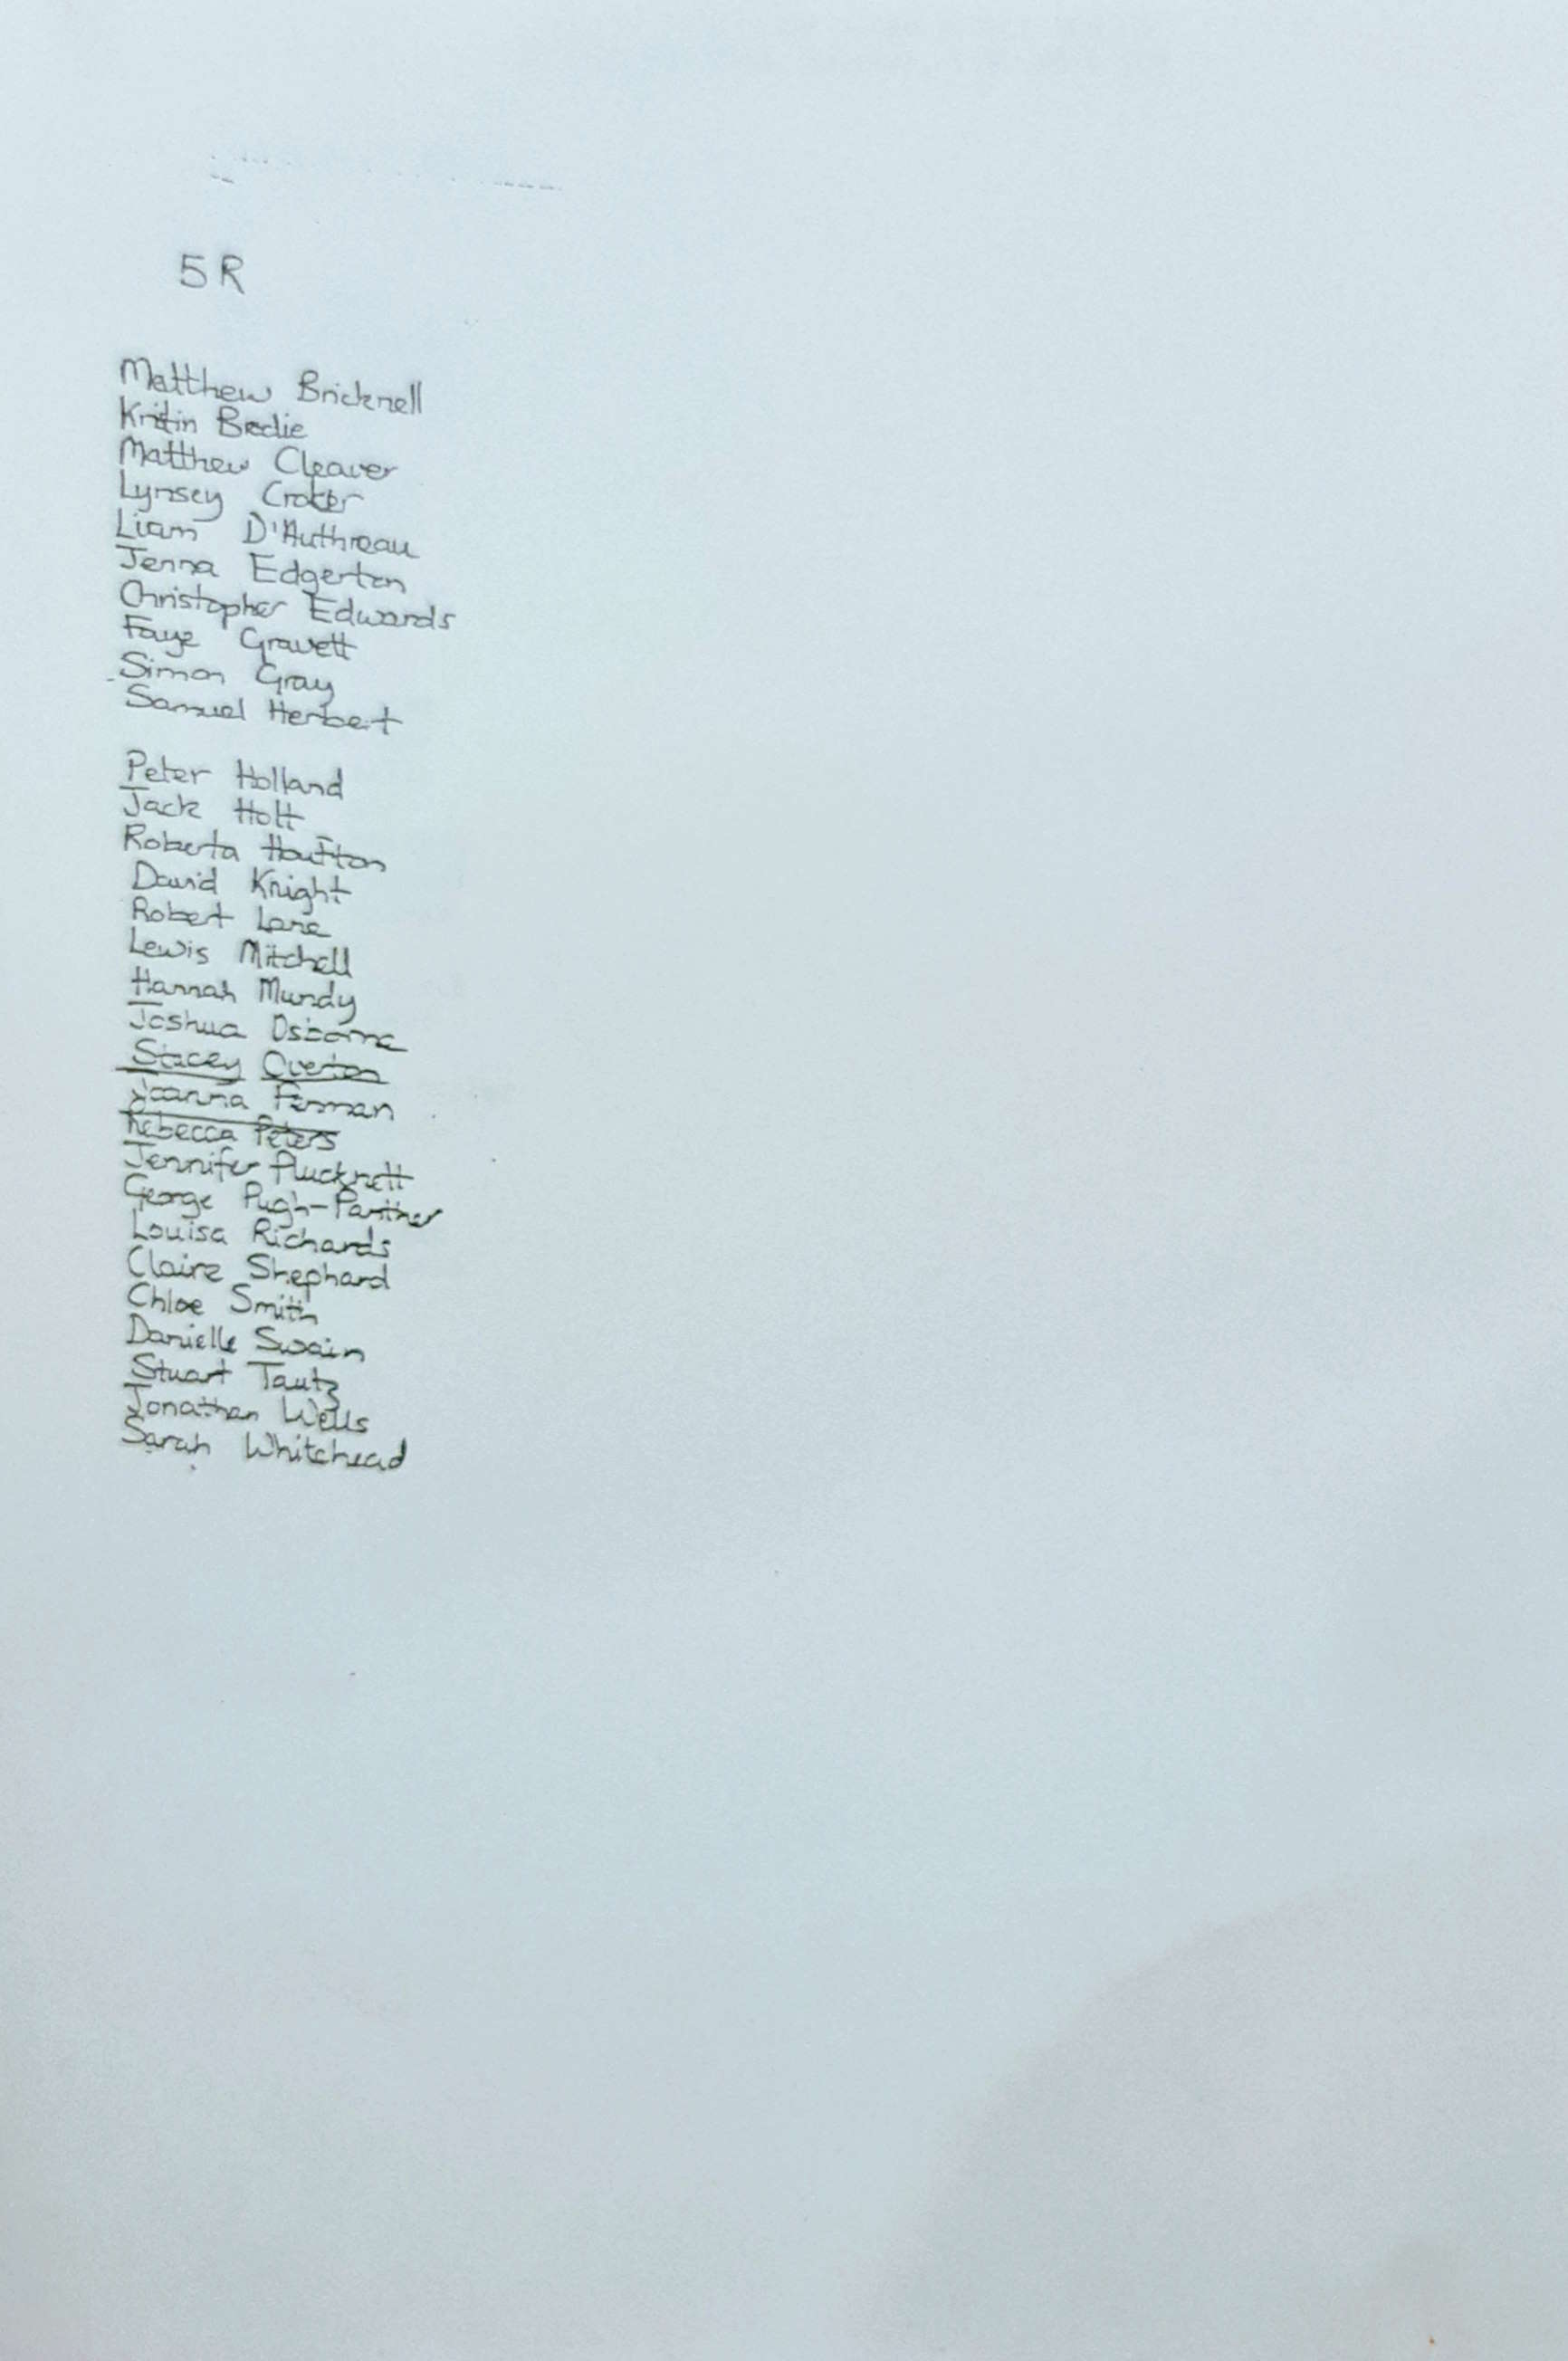 5R
Matthew Bricknell
Kristin Brodie
Matthew Cleaver
Lynsey Croker
Liam D'Authreau
Jenna Edgerton
Christopher Edwards
Faye Gravett
Simon Gray
Samuel Herbert
Peter Holland
Jack Holt
Roberta Houfton
David Knight
Robert Lane
Lewis Mitchell
Hannah Mundy
Joshua Osborne
Stacey Overton
Joanna
Rebecca Peters
Jennifer Plucknett
George Pugh-
Louisa Richards
Claire Shephard
Chloe Smith
Danielle Swain
Stuart Tautz
Jonathan Wells
Sarah Whitehead